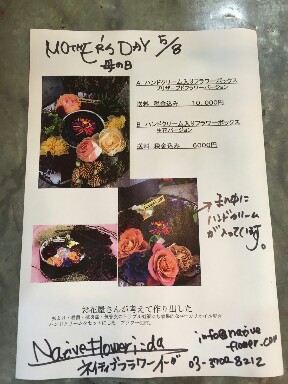 MOTHER'S DAY 5/8
母の日
A ハンドクリーム入りフラワーボックス
プリザーブドフラワーバージョン
送料 税金込み 10,000円
B ハンドクリーム入りフラワーボックス
生花バージョン
送料 税金込み 6000円
この中に
ハンドクリーム
が入っています。
お花屋さんが考えて作り出した
Native Flower i:da
ネイティブフラワーイーダ
info@native
flower.com
03-3702-8212